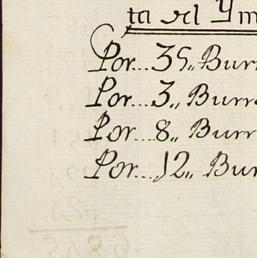 ta del Ym
Por... 35,, Burr
Por... 3,, Burr
Por... 8,, Burr
Por... 12,, Bur